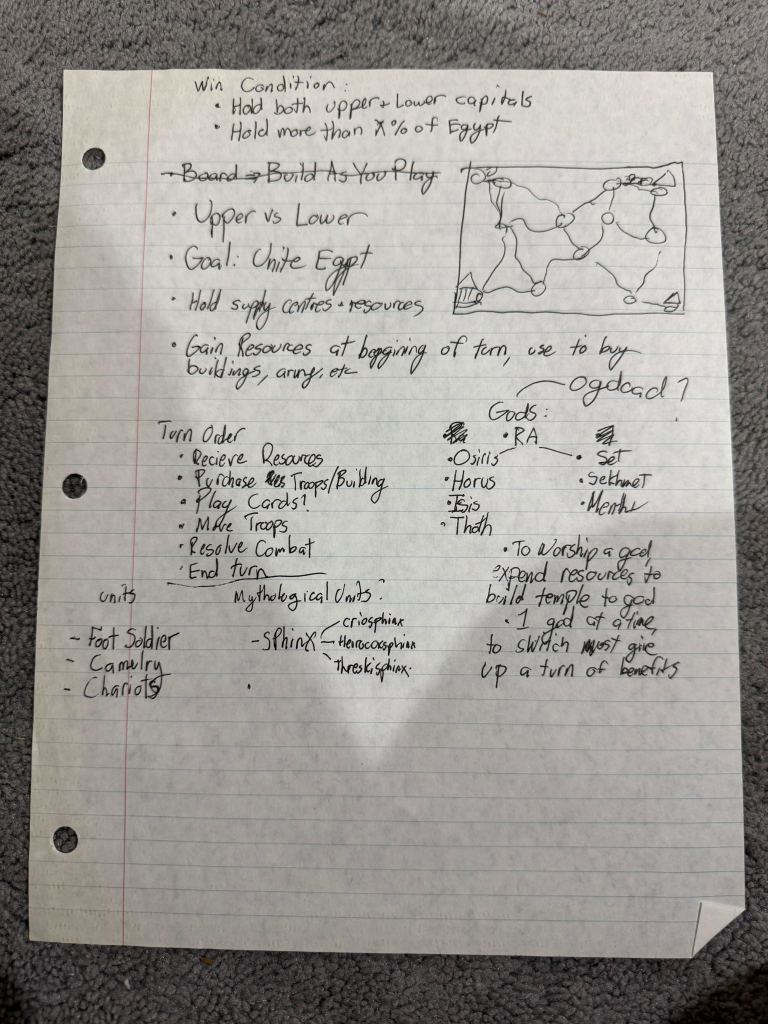 Win Condition:
• Hold both upper + Lower capitals
• Hold more than X% of Egypt
• Board → Build As You Play
• Upper vs Lower
• Goal: Unite Egypt
• Hold supply centres + resources
• Gain Resources at beggining of turn, use to buy
buildings, army, etc
Ogdoad?
Gods:
• RA
• Osiris
• Set
• Horus
• Sekhmet
• Isis
• Thoth
Turn Order
• Recieve Resources
• Purchase Troops/Building
• Play Cards?
• Move Troops
• Resolve Combat
• End turn
• To Worship a god,
expend resources to
build temple to god
• 1 god at a time,
to switch must give
up a turn of benefits
units
- Foot Soldier
- Camelry
- Chariots
Mythological Units?
- SPhinX
criosphinx
Hierocosphinx
Threskisphinx